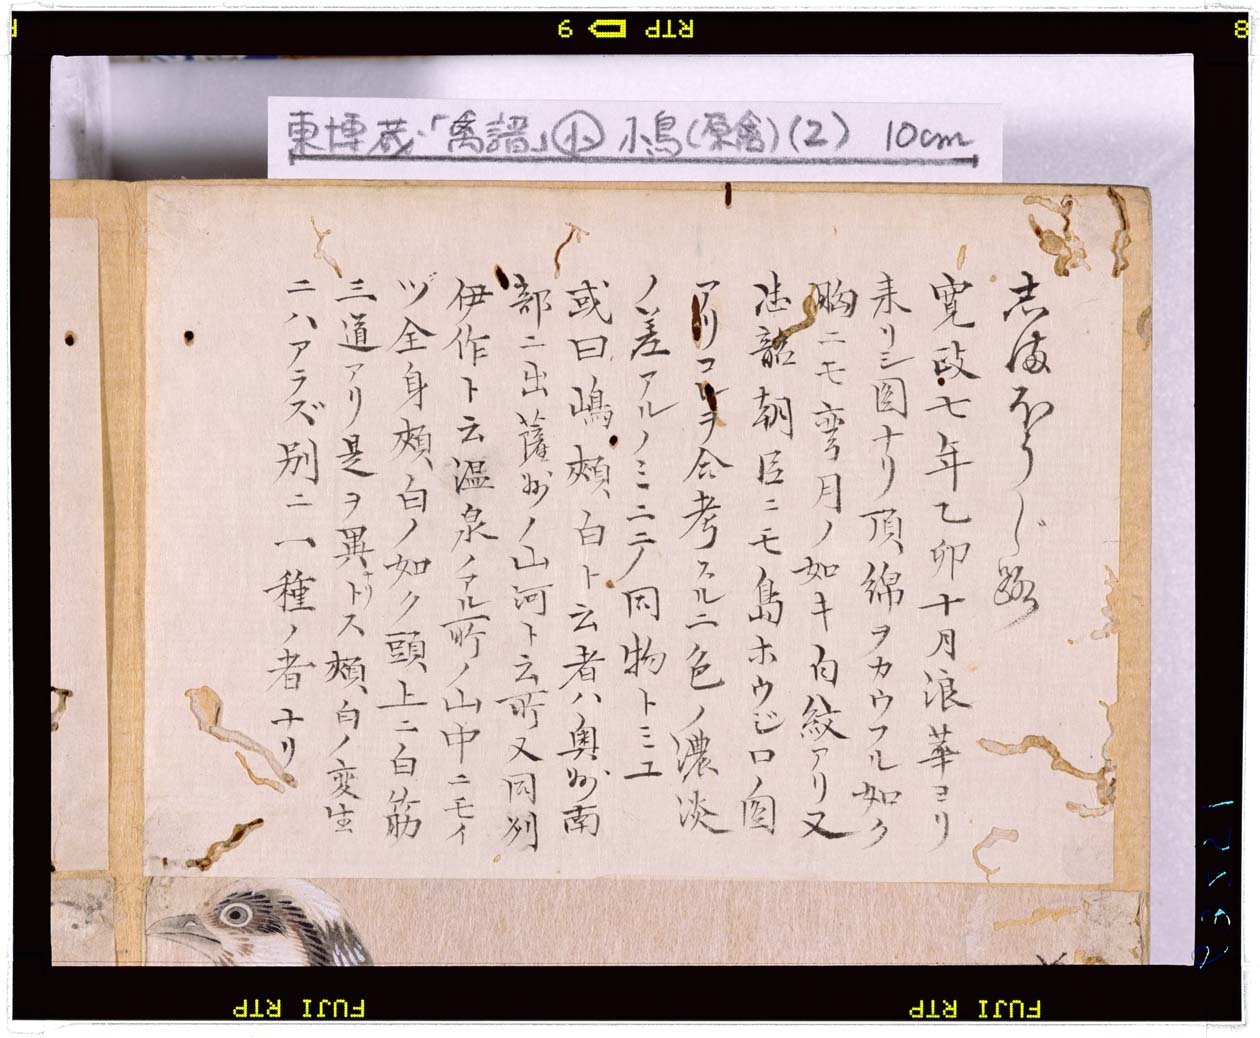 RTP 9
8
東博蔵「禽譜」小 小鳥(原禽)(2) 10cm
志满本うじ路
寛政七年乙卯十月浪華ヨリ
来リシ図ナリ頂綿ヲカウフル如ク
胸ニモ弯月ノ如キ白紋アリ又
韶朝臣ニモ島ホウジロノ図
アリコレヲ合考スルニ色ノ濃淡
ノ差アルノミニテ同物トミユ
或曰嶋頰白ト云者ハ奥州南
部ニ出薩州ノ山河ト云所又同州
伊作ト云温泉ノアル所ノ山中ニモイ
ヅ全身頰白ノ如ク頭上ニ白筋
三道アリ是ヲ異トス頰白ノ変生
ニハアラズ別ニ一種ノ者ナリ
FUJI RTP
FUJI RTP